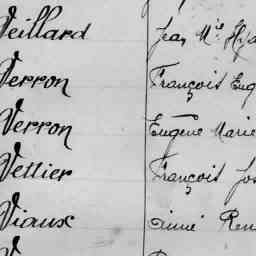 Veillard Jean Me Hya
Verron François Eug
Verron Eugène Marie
Vettier François Jos
Viaux Aimé Ren